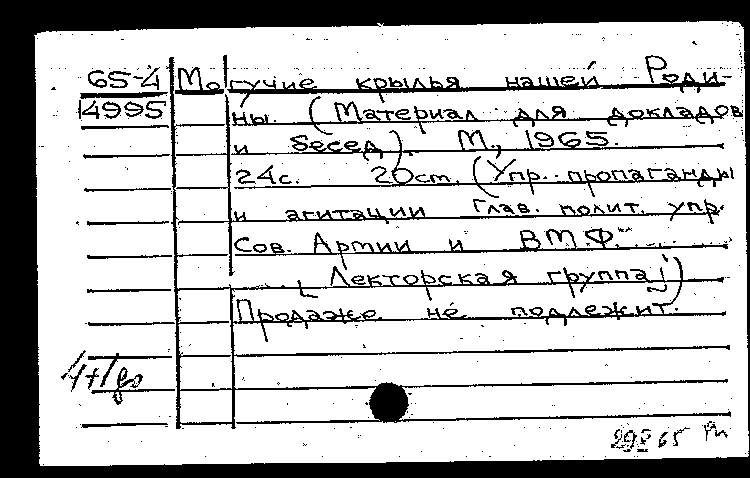 65-4 Могучие крылья нашей Роди-
4995 ны. (Материал для докладов
и бесед). М., 1965.
24с. 20ст. (Упр. пропаганды
и агитации Глав. полит. упр.
Сов. Армии и ВМФ.
[Лекторская группа])
Продаже не подлежит.
4+1
65